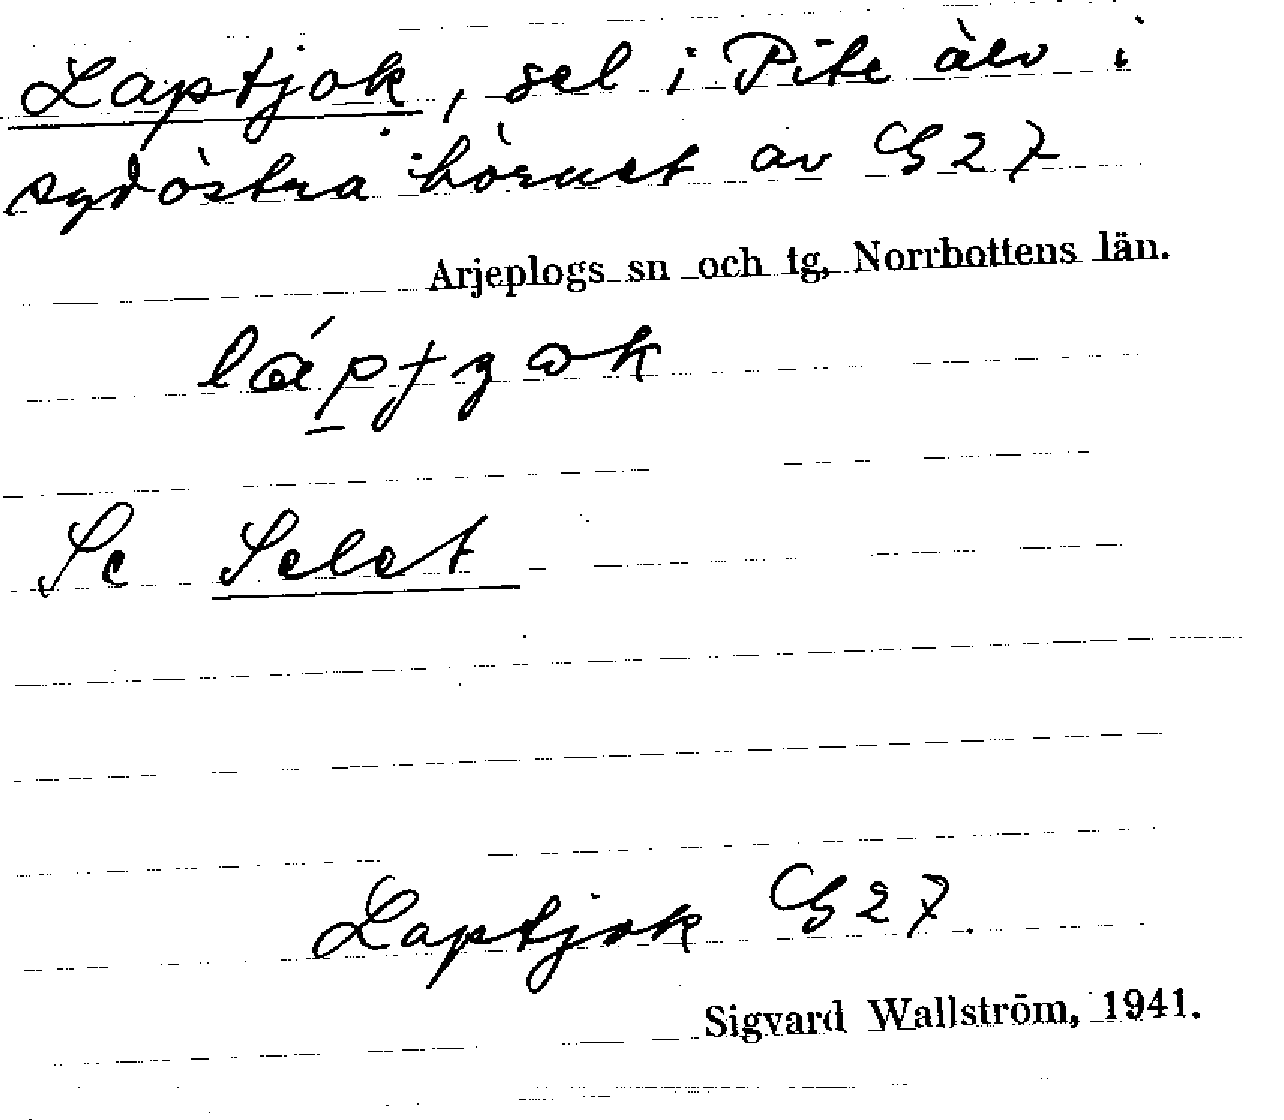 Laptjok, sel i Pite älv i
sydöstra hörnet av G27
Arjeplogs sn och tg, Norrbottens län.
Se Selet
Laptjok G27.
Sigvard Wallström, 1941.